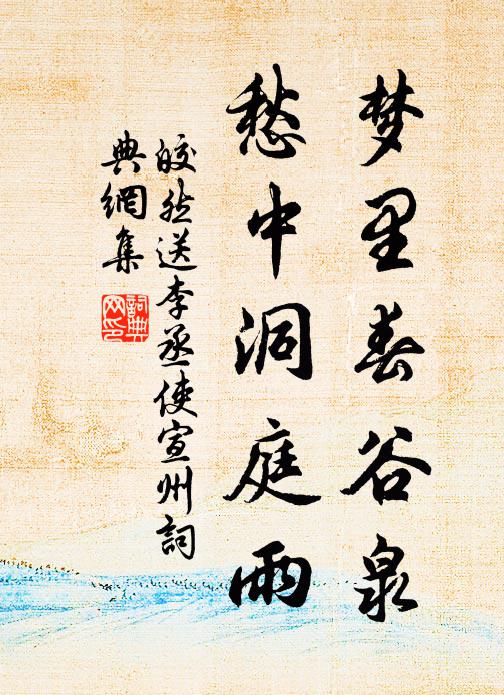 梦里春谷泉
愁中洞庭雨
皎然送李丞使宣州詞
典網集
詞典网印